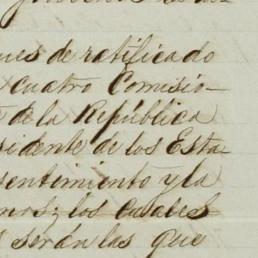 ues de ratificado
cuatro Comisio-
de la República
sidente de los Esta-
sentimiento y la
nos; los cuales
serán las que